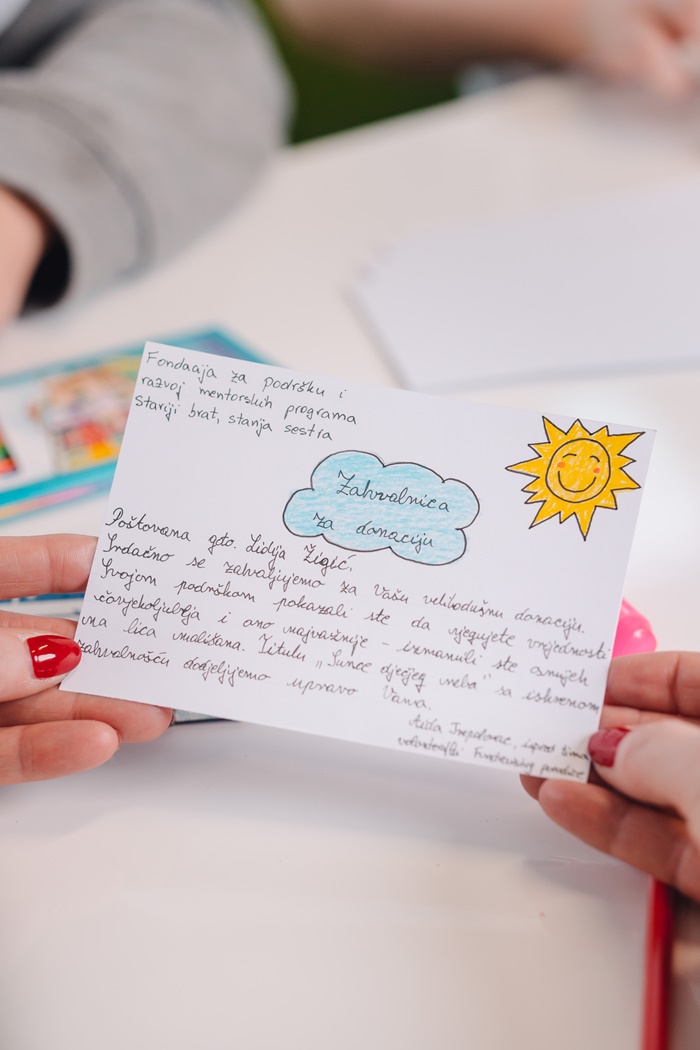 Fondacija za podršku i
razvoj mentorskih programa
stariji brat, starija sestra
Zahvalnica
za donaciju
Poštovana gđo. Lidija Žigić,
Srdačno se zahvaljujemo za Vašu velikodušnu donaciju.
Svojom podrškom pokazali ste da njegujete vrijednosti
čovjekoljublja i ono najvažnije - izmamili ste osmijeh
na lica mališana. Titulu "Sunce dječijeg neba" sa iskrenom
zahvalnošću dodjeljujemo upravo Vama.
Aida ispred tima
Fundraising